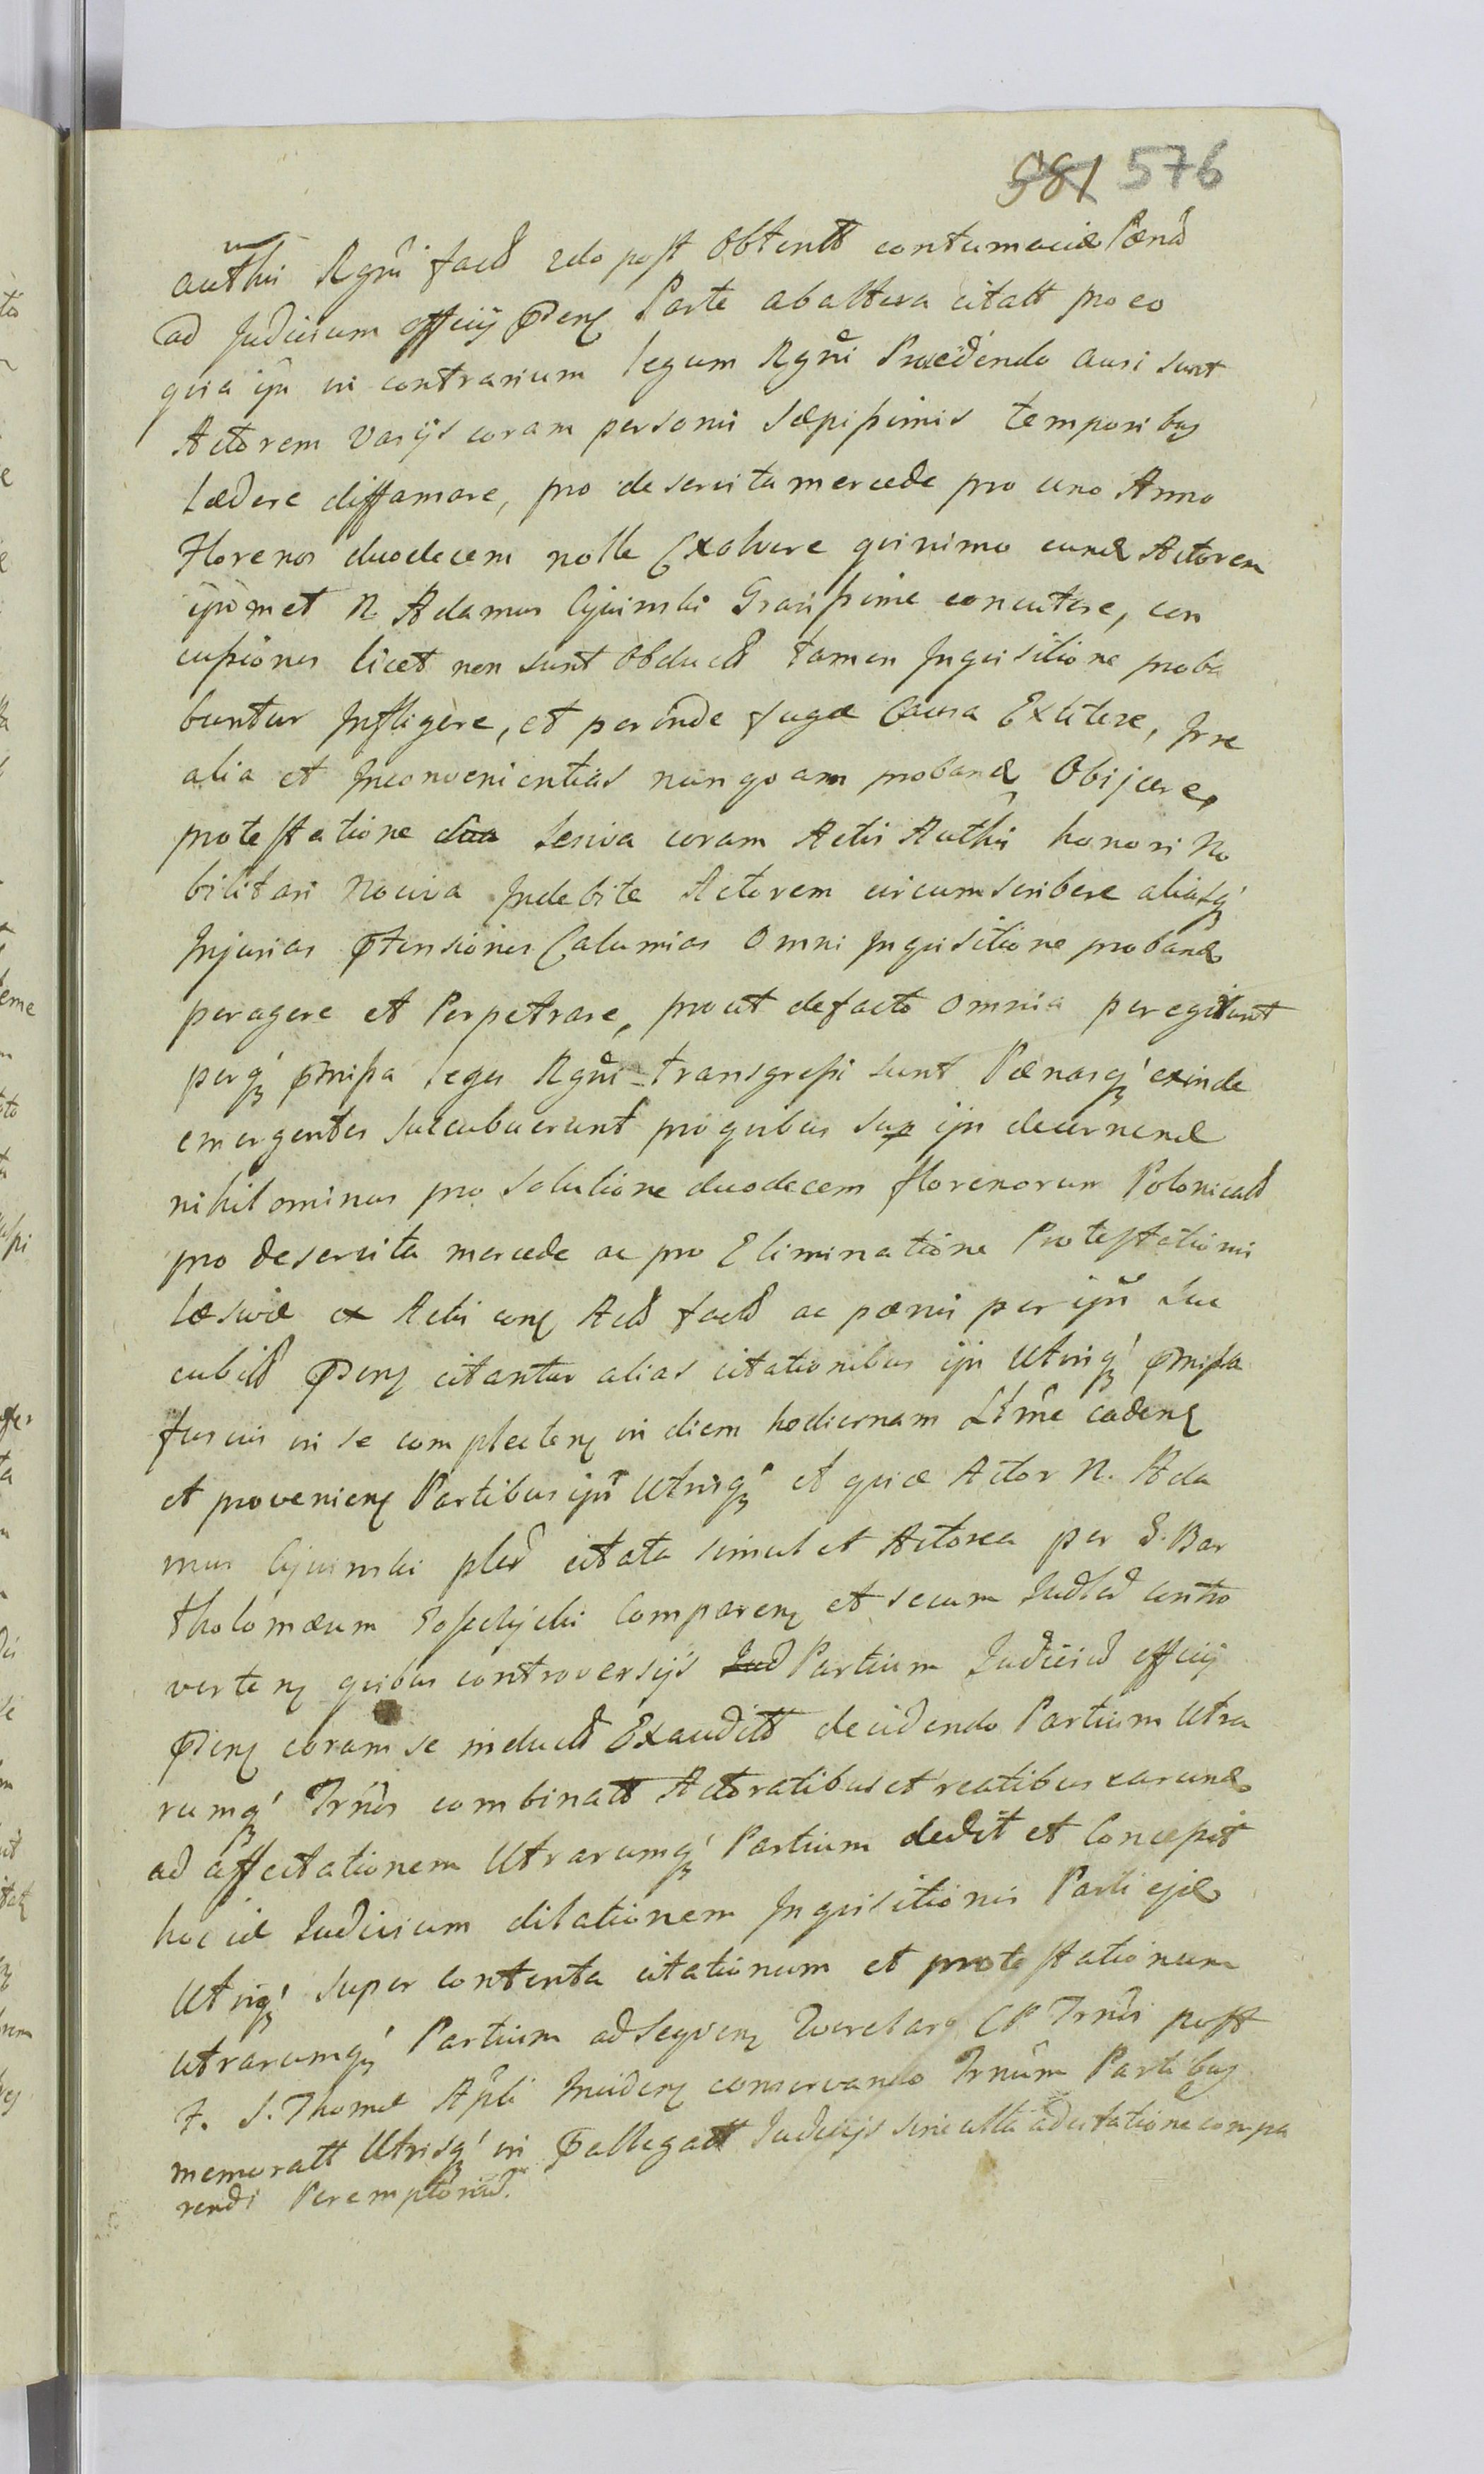 581 576
authñ Rgñi factt 2do post Obtentt contumaciæ Pænã
ad Judicium officij pñenʒ Parte abaltera citatt pro eo
quia ipñ in contrarium legum Rgñi Præcidendo ausi sunt
Actorem varijs coram personis sæpissimis temporibg
lædere diffamare, pro deservita mercede pro uno Anno
Florenos duodecem nolle Exolvere quinimo eund Actorem
ipsemet N Adamus Gravissime concutere, con
cussiones licet non sunt Obductt tamen Inquisitione proba
buntur Infligere, et perinde fugæ Causa Extitere,
alia et Inconvenientias nunquam proband Obijcere,
protestatione læsiva coram Actis Authñ honori No
bilitari nociva Indebite Actorem circumscribere aliasqʒ
Injurias ptensiones Calumias Omni Inquisitione proband
peragere et Perpetrare, prout defacto omnia peregerunt
perqʒ pmissa leges Rgñi transgressi sunt Pænasqʒ exinde
emergentes succubuerunt pro quibus sup ipñ decernend
nihilominus pro Solutione duodecem florenorum Polonicaltt
pro deservita mercede ac pro Eliminatione Protestationis
læsivæ ex Actis conʒ factt ac pænis per ipñ suc
cubitt pñenʒ citantur alias citationibus ipñ Utriqʒ pmissa
fusius in se complectenʒ in diem hodiernam Ltime cadenʒ
et provenienʒ Partibus ipñ Utrisqʒ et quia Actor N. Ada
mus citata simul et Actorea per S. Bar
tholomæum Comparenʒ et secum Judtr contro
vertenʒ quibus controversijs Jud Partium Judicium officij
pñenʒ coram se inductt Exauditt decidendo Partium Utra
rumqʒ Trñis combinatt Actoratibus et reatibus earund
ad affectationem Utrarumqʒ Partium dedit et Concessit
hoc id Judicium dilationem Inquisitionis Parti ejd
Utriqʒ super contenta citationum et protestationum
utrarumqʒ Partium ad Sequenʒ Querelarʒ CP Trñis post
F. S. Thomæ Apli Incidenʒ conservando Trñum Partibg
memoratt Utrisqʒ in pallegatt Judicijs sine ulla adcitatione compa
rendi Peremptorium.